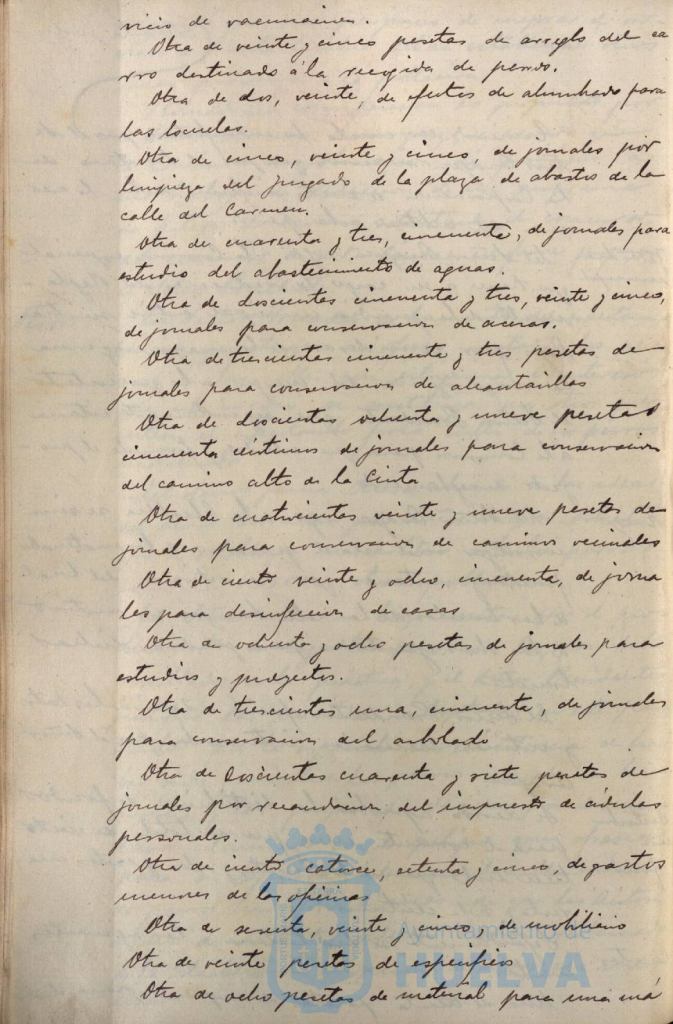 vicio de vacunacion.
Otra de veinte y cinco pesetas de arreglo del ca
rro destinado á la recogida de perros.
Otra de dos, veinte, de efectos de alumbrado para
las Escuelas.
Otra de cinco, veinte y cinco, de jornales por
limpieza del juzgado de la plaza de abastos de la
calle del Carmen.
Otra de cuarenta y tres, cincuenta, de jornales para
estudio del abastecimiento de aguas.
Otra de doscientas cincuenta y tres, veinte y cinco,
de jornales para conservacion de aceras.
Otra de trescientas cincuenta y tres pesetas de
jornales para conservacion de alcantarillas
Otra de doscientas ochenta y nueve pesetas
cincuenta céntimos de jornales para conservacion
del camino alto de la Cinta
Otra de cuatrocientas veinte y nueve pesetas de
jornales para conservacion de caminos vecinales
Otra de ciento veinte y ocho, cincuenta, de jorna
les para desinfeccion de casas
Otra de ochenta y ocho pesetas de jornales para
estudios y proyectos.
Otra de trescientas una, cincuenta, de jornales
para conservacion del arbolado
Otra de doscientas cuarenta y siete pesetas de
jornales por recaudacion del impuesto de cédulas
personales.
Otra de ciento catorce, setenta y cinco, de gastos
menores de las oficinas
Otra de sesenta, veinte y cinco, de mobiliario
Otra de veinte pesetas de especifico
Otra de ocho pesetas de material para una má
Ayuntamiento de
HUELVA